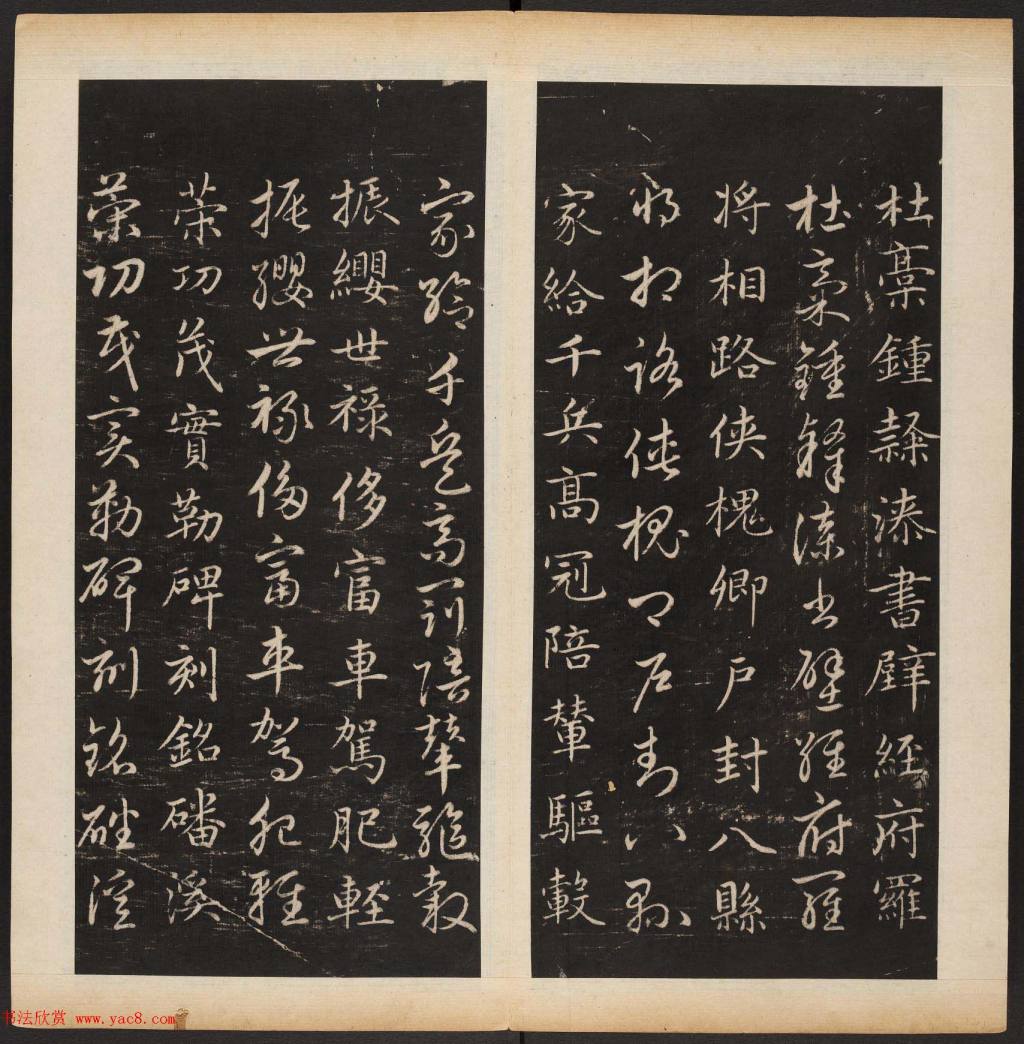 杜稾鍾隸漆書壁經府羅
杜稾鍾隸漆書壁經府羅
將相路俠槐卿戶封八縣
將相路俠槐卿戶封八縣
家給千兵高冠陪輦驅轂
家給千兵高冠陪輦驅轂
振纓世祿侈富車駕肥輕
振纓世祿侈富車駕肥輕
策功茂實勒碑刻銘磻溪
策功茂實勒碑刻銘磻溪
书法欣赏 www.yac8.com